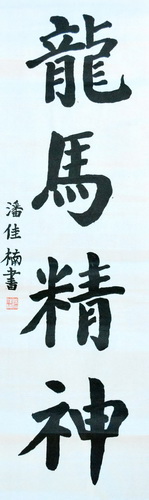 龍馬精神
潘佳楠書